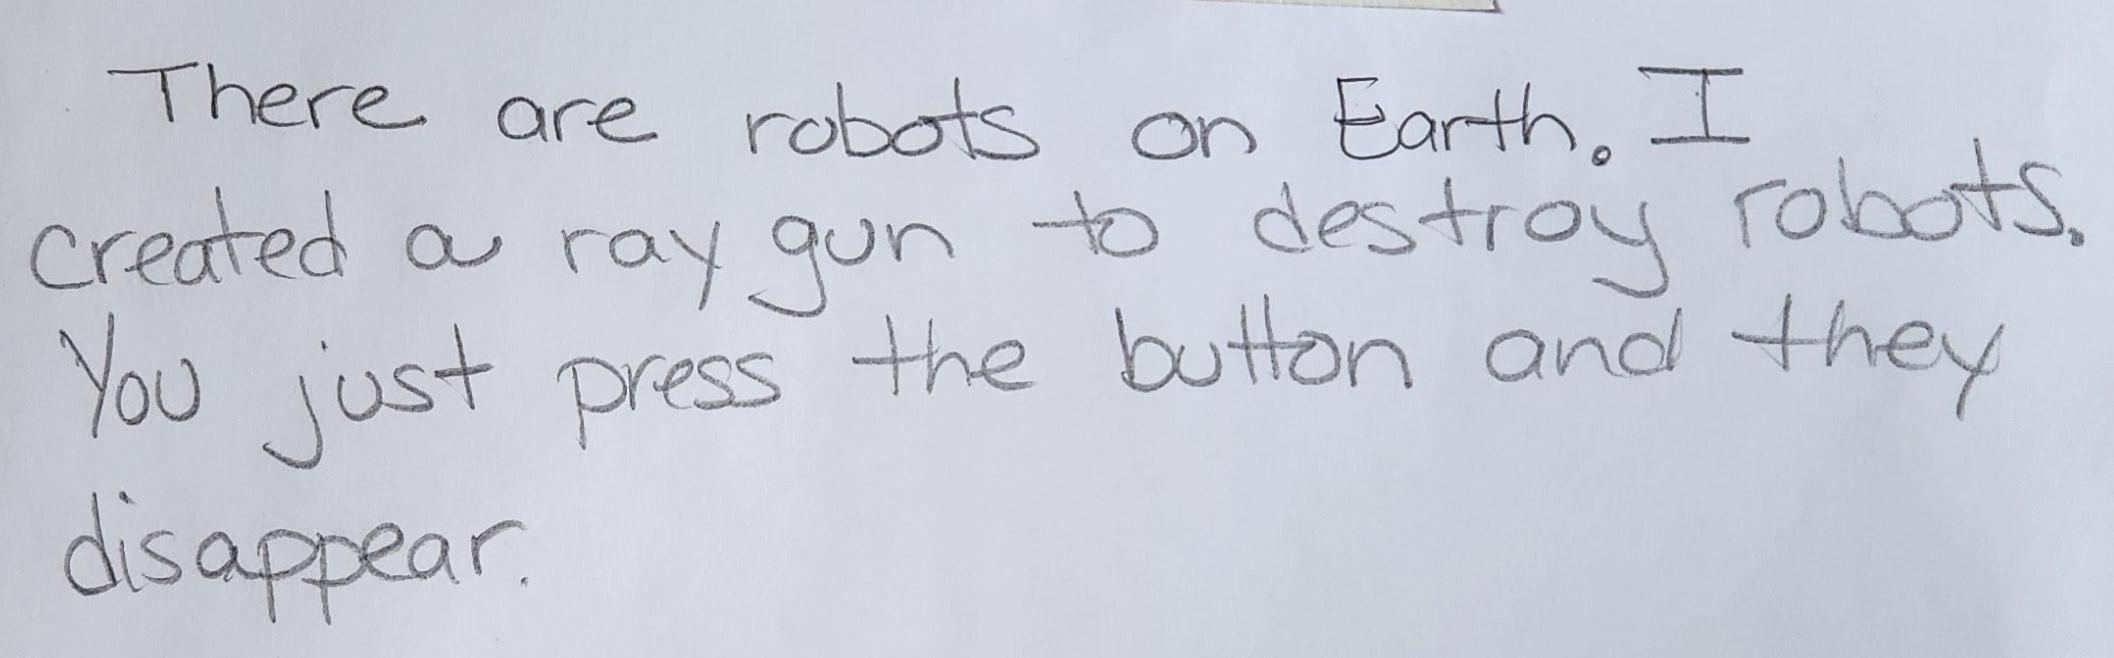 There are robots on Earth. I
created a ray gun to destroy robots.
You just press the button and they
disappear.